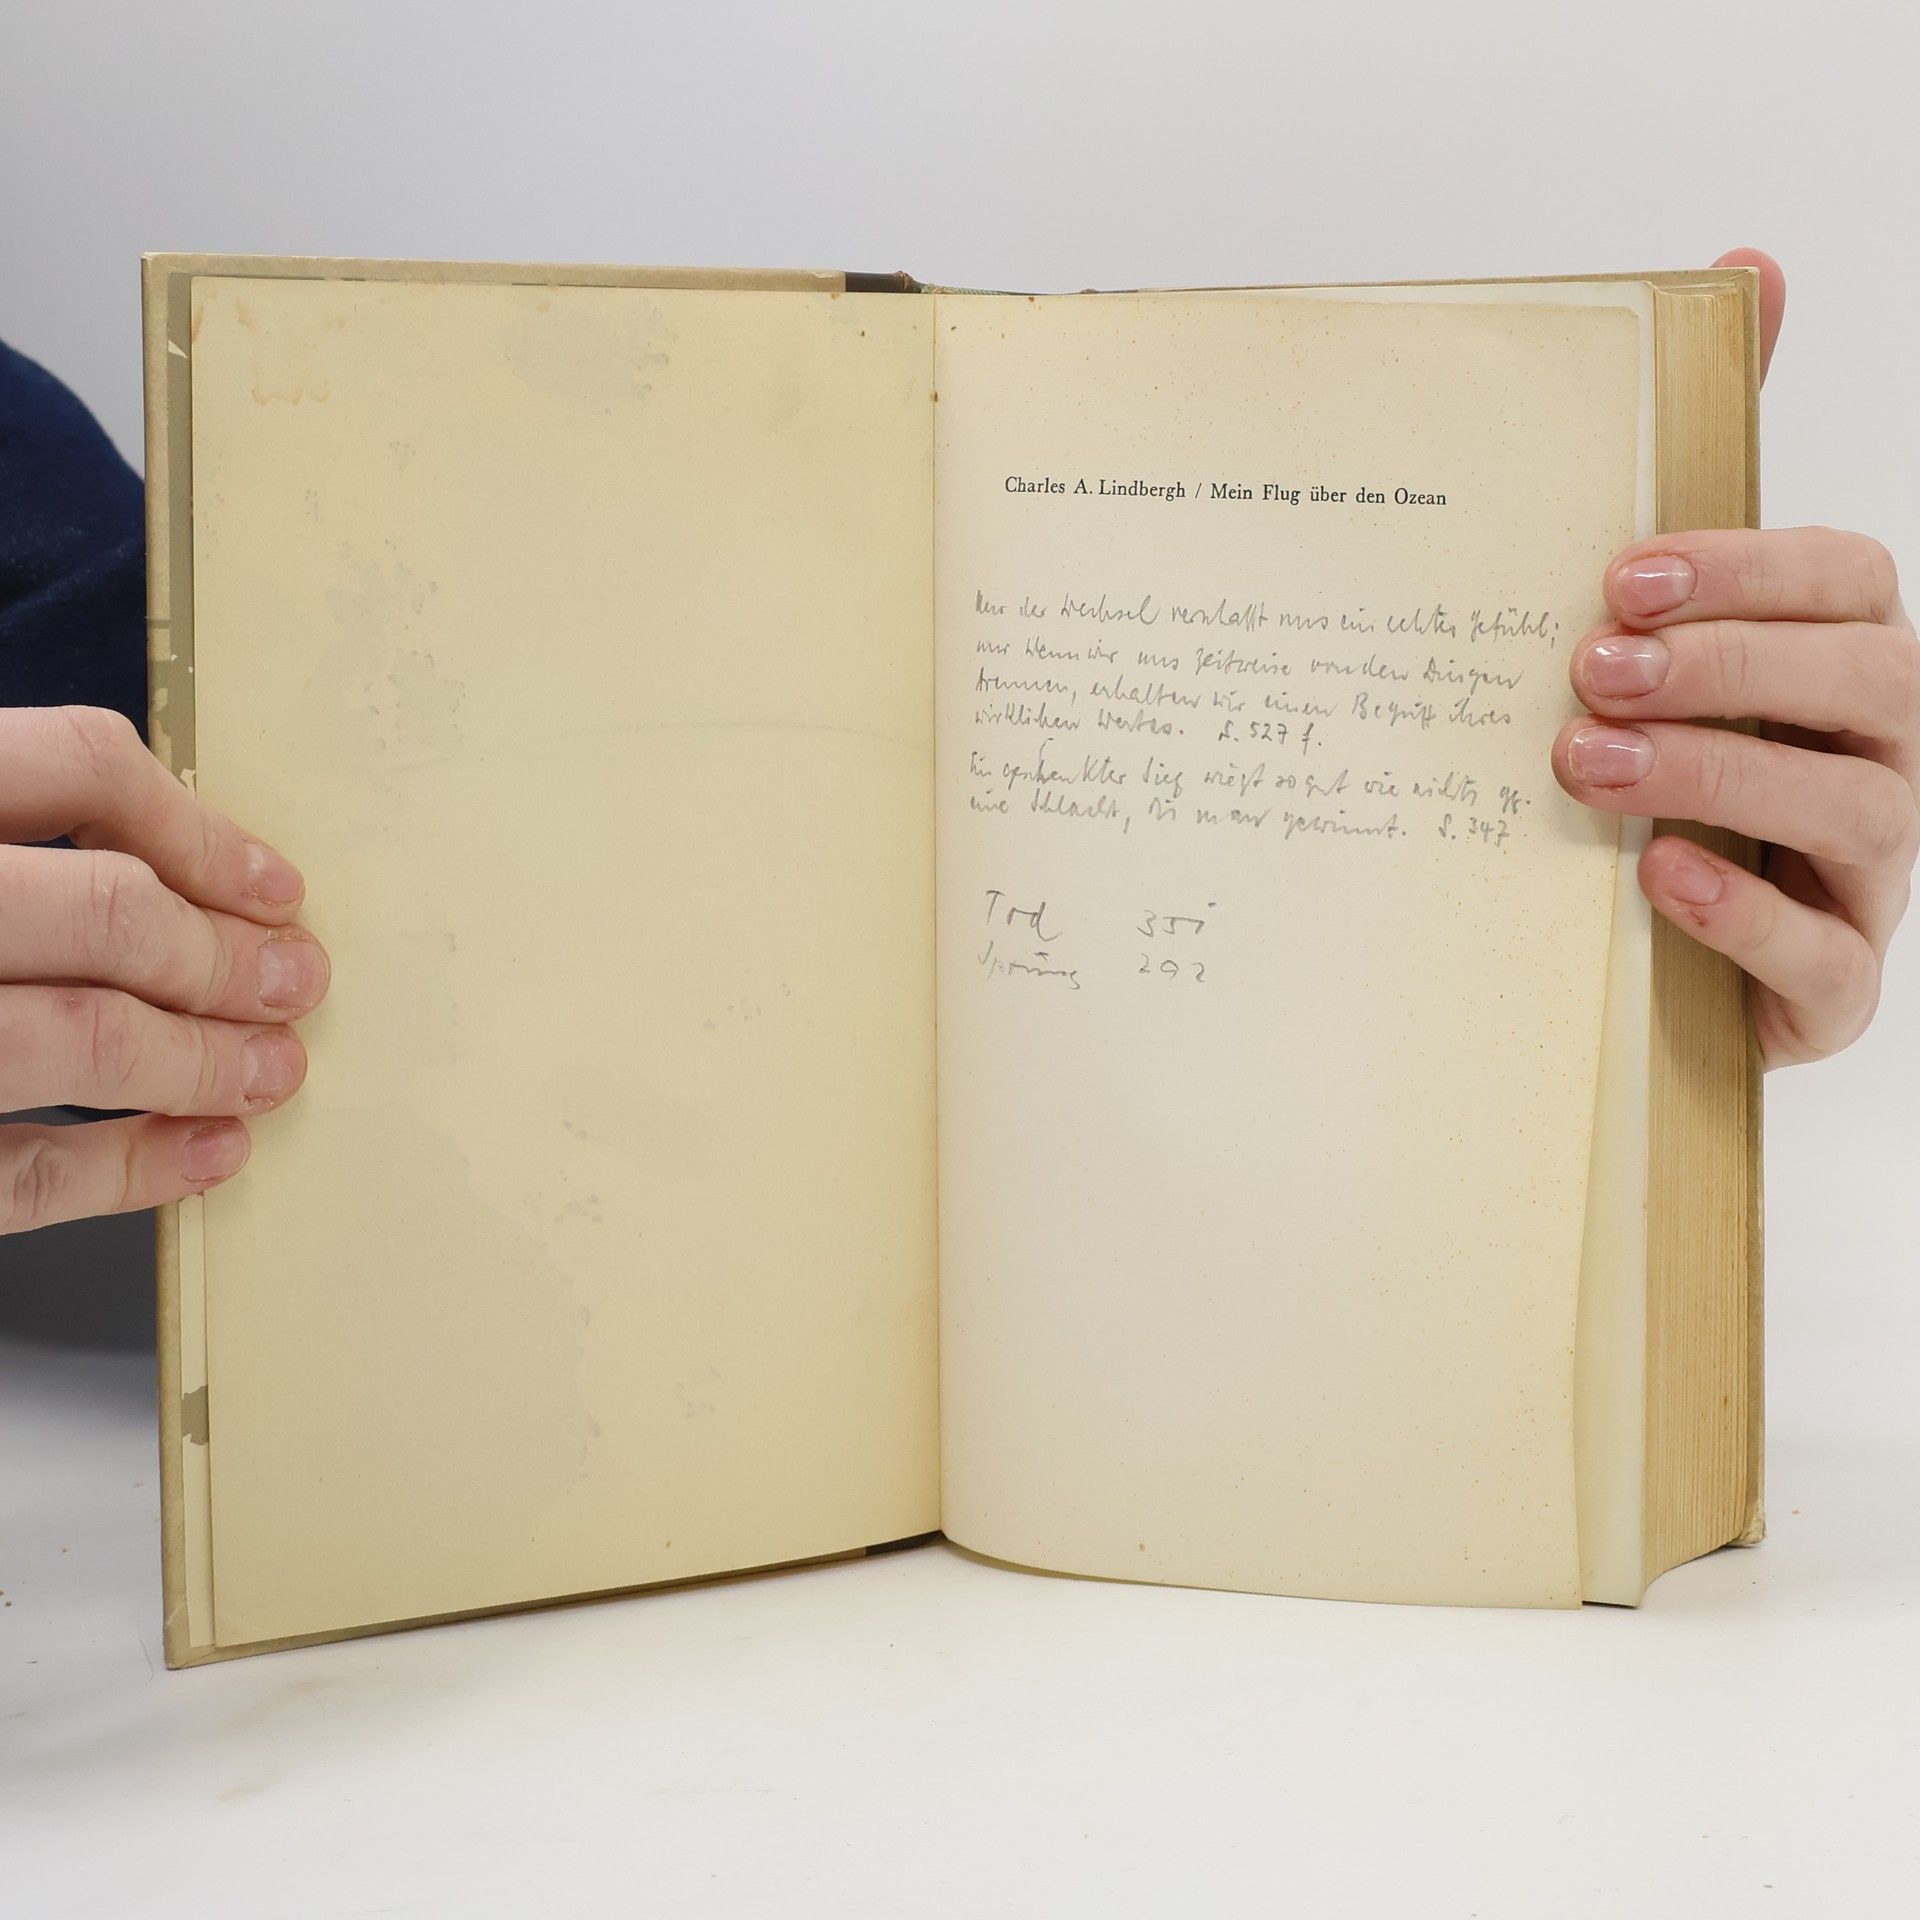 Charles A. Lindbergh / Mein Flug über den Ozean
Nur der Wechsel verschafft uns ein echtes Gefühl;
nur wenn wir uns zeitweise von den Dingen
trennen, erhalten wir einen Begriff ihres
wirklichen Wertes. S. 527 f.
Ein geschenkter Sieg wiegt so gut wie nichts gg.
eine Schlacht, die man gewinnt. S. 347
Tod 351
Sprung 292